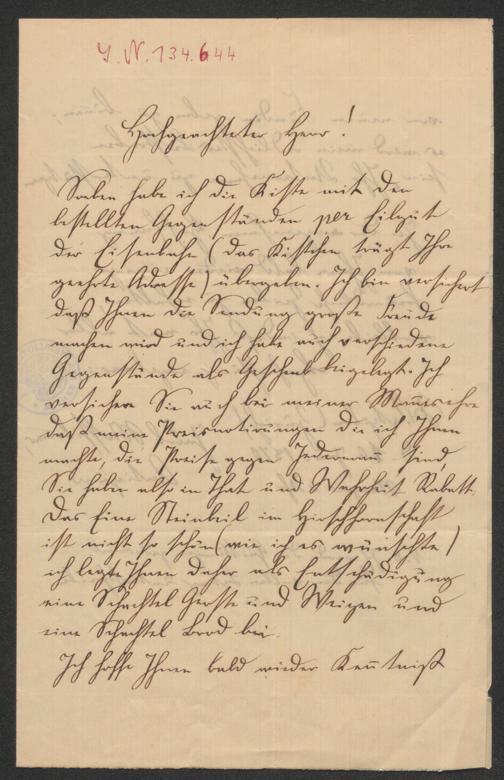 I. N. 134.644
Hochgeachteter Herr!
Soeben habe ich die Kiste mit den
bestellten Gegenständen per Eilgut
der Eisenbahn (das Kistchen trägt Ihre
geehrte Adresse) übergeben. Ich bin versichert
daß Ihnen die Sendung große Freude
machen wird und ich habe auch verschiedene
Gegenstände als Geschenk beigelegt. Ich
versichere Sie auch bei meiner Mannesehre
daß meine Preisnotirungen die ich Ihnen
machte, die Preise gegen Jedermann sind,
Sie haben also in That und Wahrheit Rabatt.
Das Eine Steinbeil im Hirschhornschaft
ist nicht so schön (wie ich es wünschte)
ich legte Ihnen daher als Entschädigung
eine Schachtel Gerste und Weizen und
eine Schachtel Brod bei.
Ich hoffe Ihnen bald wieder Kenntniß